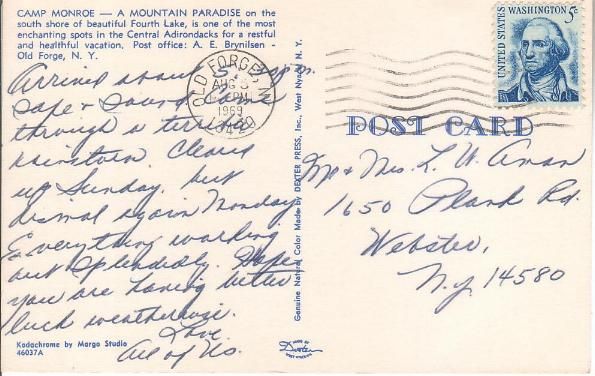 CAMP MONROE — A MOUNTAIN PARADISE on the
south shore of beautiful Fourth Lake, is one of the most
enchanting spots in the Central Adirondacks for a restful
and healthful vacation. Post office: A. E. Brynilsen -
Old Forge, N. Y.
Arrived about 5:15 p.m.
safe & sound. Came
through a terrible
rainstorm. Cleared
up Sunday, but
dismal again Monday
Everything working
out splendidly. Hope
you are having better
luck weatherwise.
Love
All of Us.
Kodachrome by Margo Studio
46037A
Genuine Natural Color Made by DEXTER PRESS, Inc., West Nyack, N. Y.
MADE BY
Dexter
WEST NYACK, N.Y.
OLD FORGE, N.Y.
AUG
PM
1969
13420
UNITED STATES
WASHINGTON
5c
POST CARD
Mr & Mrs. L. W. Aman
1650 Plank Rd.
Webster,
N.Y. 14580